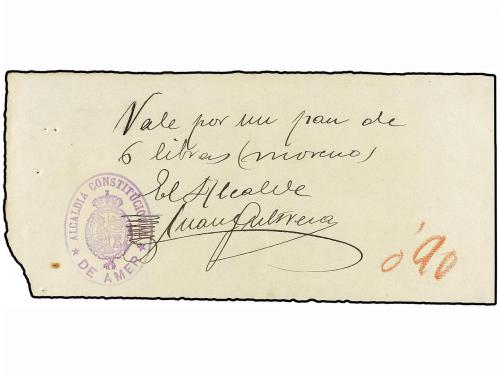 Vale por un pan de
6 libras (moreno)
El Alcalde
Juan
ALCALDIA CONSTITUCIONAL
★ DE AMER ★
0'90